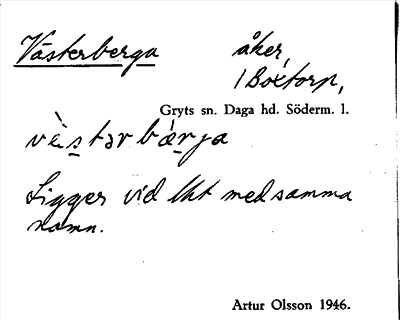 Västerberga åker,
1 Boxtorp,
Gryts sn. Daga hd. Söderm. l.
vès̲tər bæ̀r̲ja
Ligger vid lht med samma
namn.
Artur Olsson 1946.